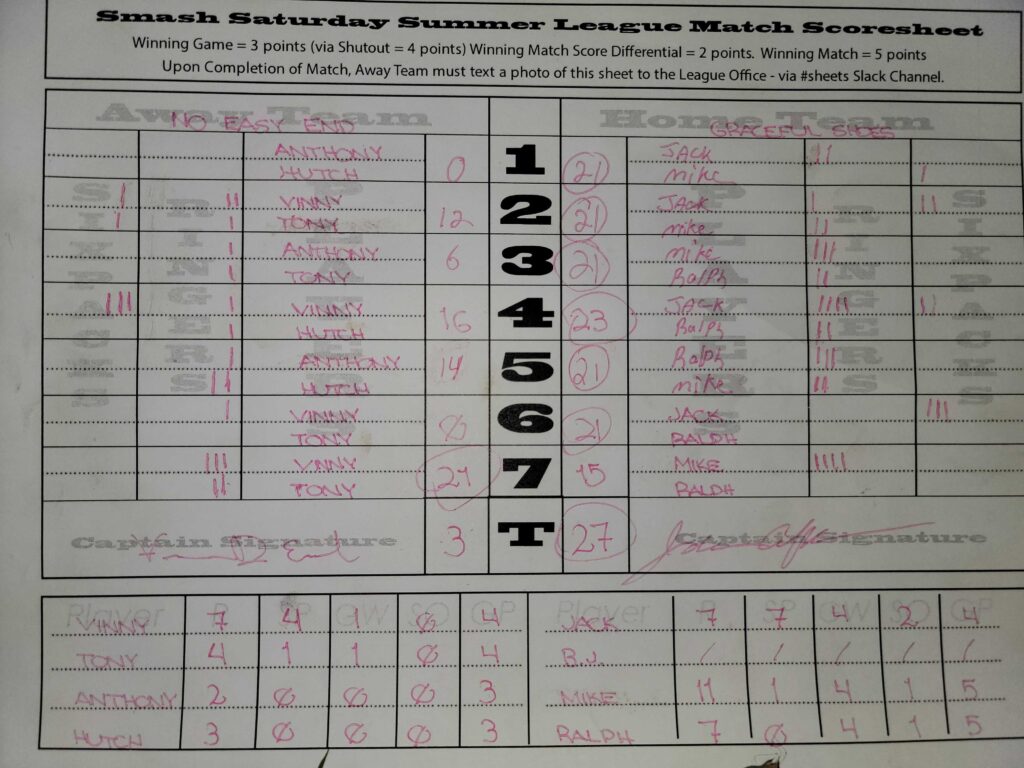 Smash Saturday Summer League Match Scoresheet
Winning Game = 3 points (via Shutout = 4 points) Winning Match Score Differential = 2 points. Winning Match = 5 points
Upon Completion of Match, Away Team must text a photo of this sheet to the League Office - via #sheets Slack Channel.
Away Team Home Team
NO EASY END GRACEFUL SHOES
SIXPACKS RINGERS PLAYERS PLAYERS RINGERS SIXPACKS
ANTHONY JACK
HUTCH 0 1 21 mike
VINNY JACK
TONY 12 2 21 mike
ANTHONY mike
TONY 6 3 21 Ralph
VINNY JACK
HUTCH 16 4 23 Ralph
ANTHONY Ralph
HUTCH 14 5 21 mike
VINNY JACK
TONY 6 21 RALPH
VINNY MIKE
TONY 21 7 15 RALPH
Captain Signature 3 T 27 Captain Signature
Player R SP GW SO GP Player R SP GW SO GP
VINNY 7 4 1 0 4 JACK 7 7 4 2 4
TONY 4 1 1 0 4 B.J. / / / / /
ANTHONY 2 0 0 0 3 MIKE 11 1 4 1 5
HUTCH 3 0 0 0 3 RALPH 7 0 4 1 5